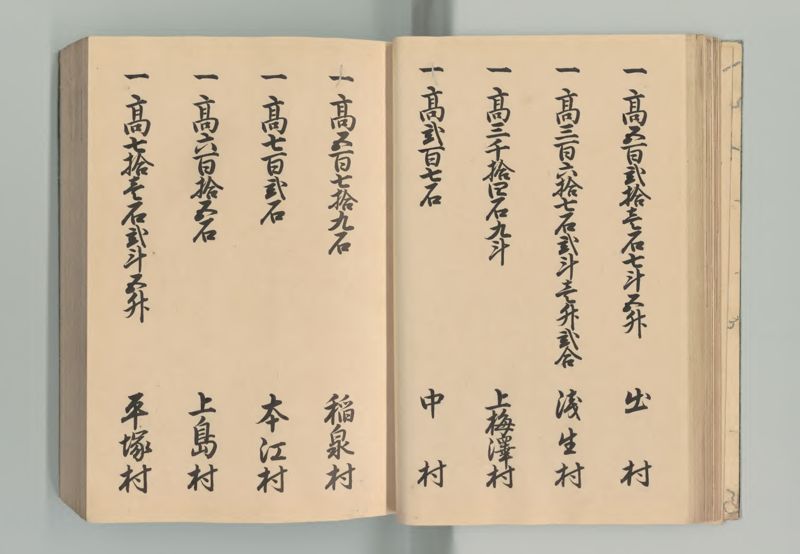 一 高五百弐拾壱石七斗五升 出村
一 高三百六拾七石弐斗壱升弐合 浅生村
一 高三千拾四石九斗 上梅澤村
一 高弐百七石 中村
一 高五百七拾九石 稲泉村
一 高七百弐石 本江村
一 高六百拾五石 上島村
一 高七拾壱石弐斗五升 平塚村